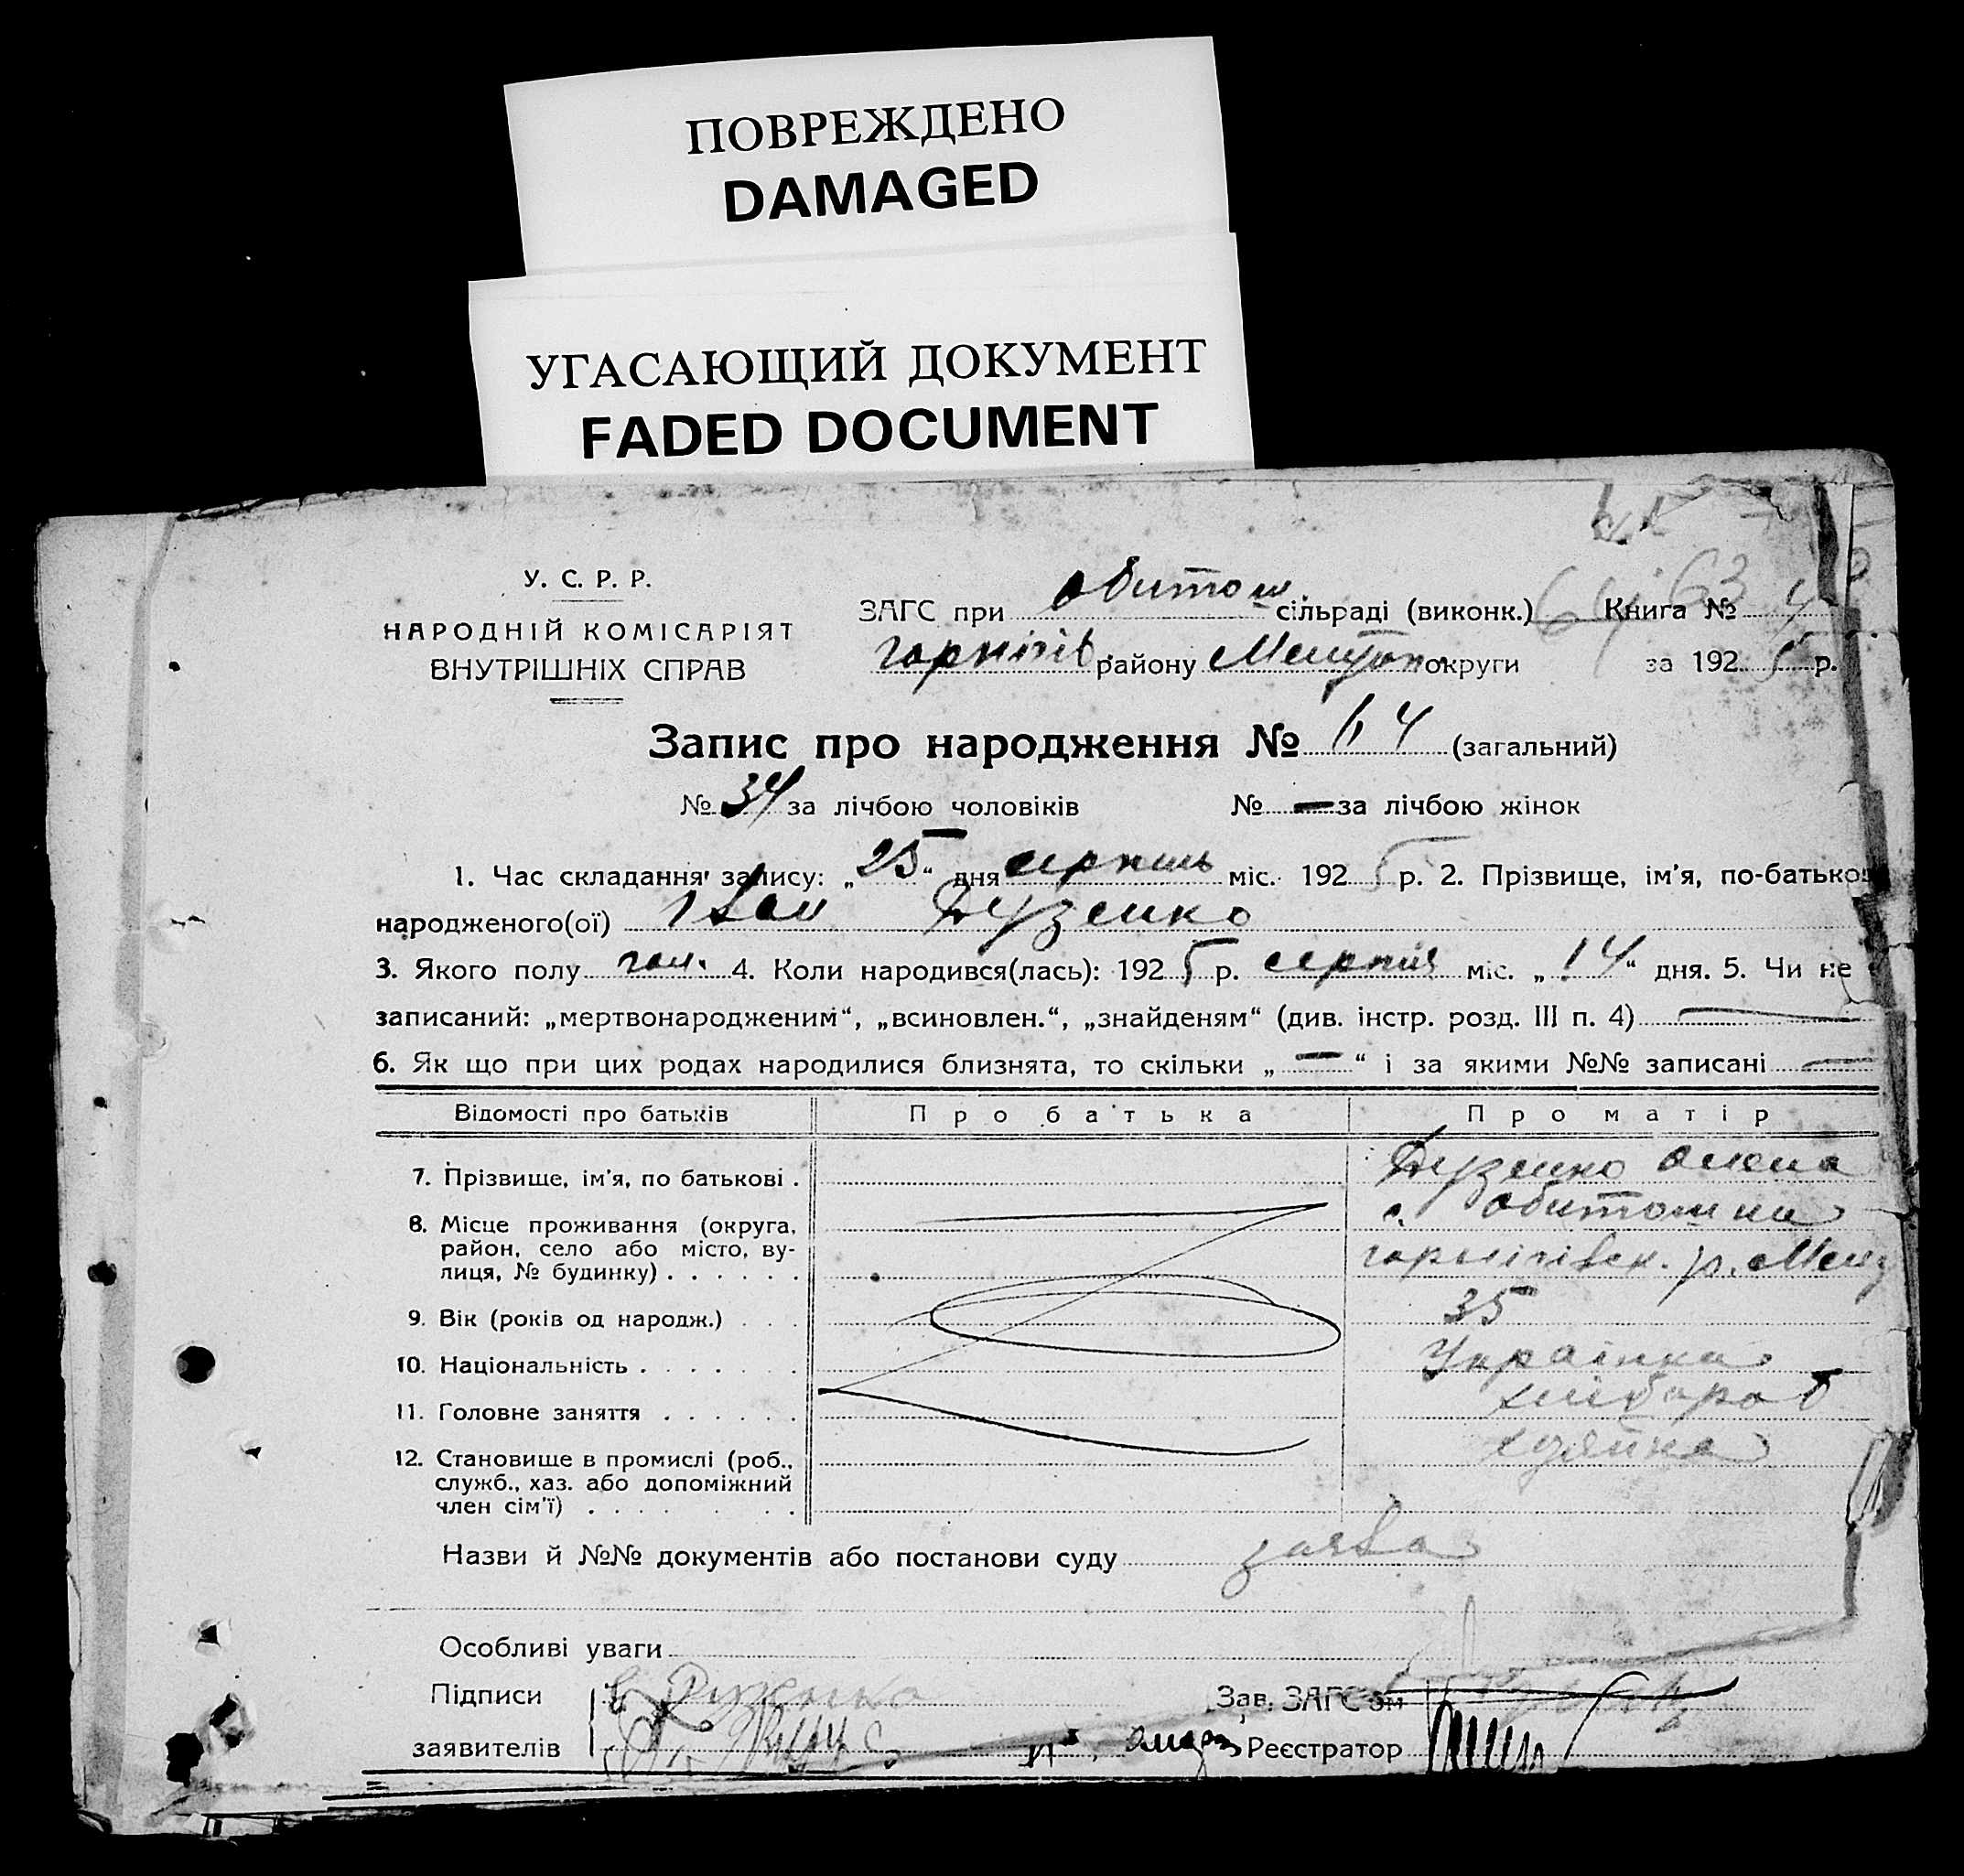 ПОВРЕЖДЕНО
DAMAGED
УГАСАЮЩИЙ ДОКУМЕНТ
FADED DOCUMENT
У. С. Р. Р.
НАРОДНІЙ КОМІСАРІЯТ
ВНУТРІШНІХ СПРАВ
ЗАГС при Обиточ. сільраді (виконк.) Книга № 4
району округи за 1925 р.
64 63
Запис про народження № 64 (загальний)
№ 34 за лічбою чоловіків № — за лічбою жінок
1. Час складання запису: „25“ дня серпень міс. 1925 р. 2. Прізвище, ім'я, по-батькові
народженого(ої) Іван Дузенко
3. Якого полу чол. 4. Коли народився(лась): 1925 р. серпня міс. „14“ дня. 5. Чи не
записаний: „мертвонародженим“, „всиновлен.“, „знайденям“ (див. інстр. розд. III п. 4) —
6. Як що при цих родах народилися близнята, то скільки „—“ і за якими №№ записані —
Відомості про батьків Про батька Про матір
7. Прізвище, ім'я, по батькові . Дузенко Олена
8. Місце проживання (округа,
район, село або місто, ву-
лиця, № будинку) . . . . . .
9. Вік (років од народж.) . . . 35
10. Національність . . . . . Українка
11. Головне заняття . . . . . . хлібороб
12. Становище в промислі (роб.,
служб., хаз. або допоміжний
член сім'ї) . . . . . . хозяйка
Назви й №№ документів або постанови суду заява
Особливі уваги
Підписи Дузенко Зав. ЗАГС'ом
заявителів Реєстратор